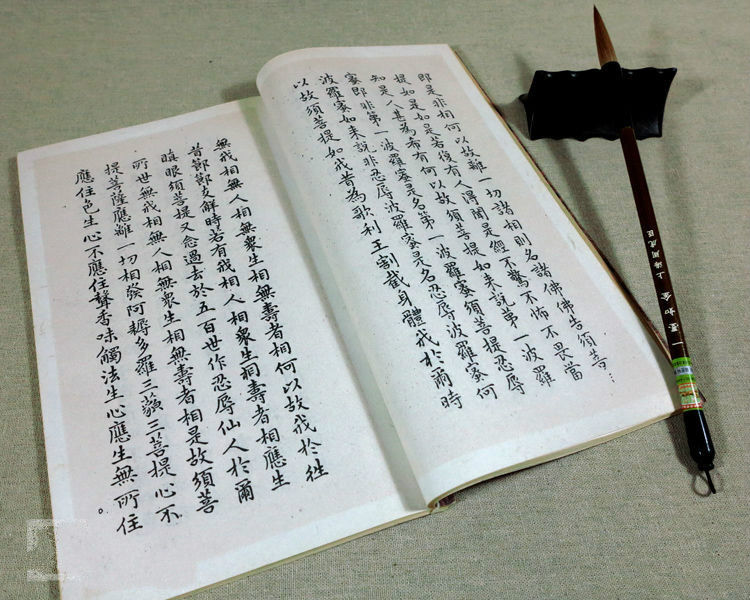 即是非相何以故離一切諸相則名諸佛佛告須菩
提如是如是若復有人得聞是經不驚不怖不畏當
知是人甚為希有何以故須菩提如来說第一波羅
蜜即非第一波羅蜜是名第一波羅蜜須菩提忍辱
波羅蜜如来說非忍辱波羅蜜是名忍辱波羅蜜何
以故須菩提如我昔為歌利王割截身體我於爾時
無我相無人相無衆生相無壽者相何以故我於往
昔節節支解時若有我相人相衆生相壽者相應生
瞋恨須菩提又念過去於五百世作忍辱仙人於爾
所世無我相無人相無衆生相無壽者相是故須菩
提菩薩應離一切相發阿耨多羅三藐三菩提心不
應住色生心不應住聲香味觸法生心應生無所住。
一墨如金 上海周虎臣